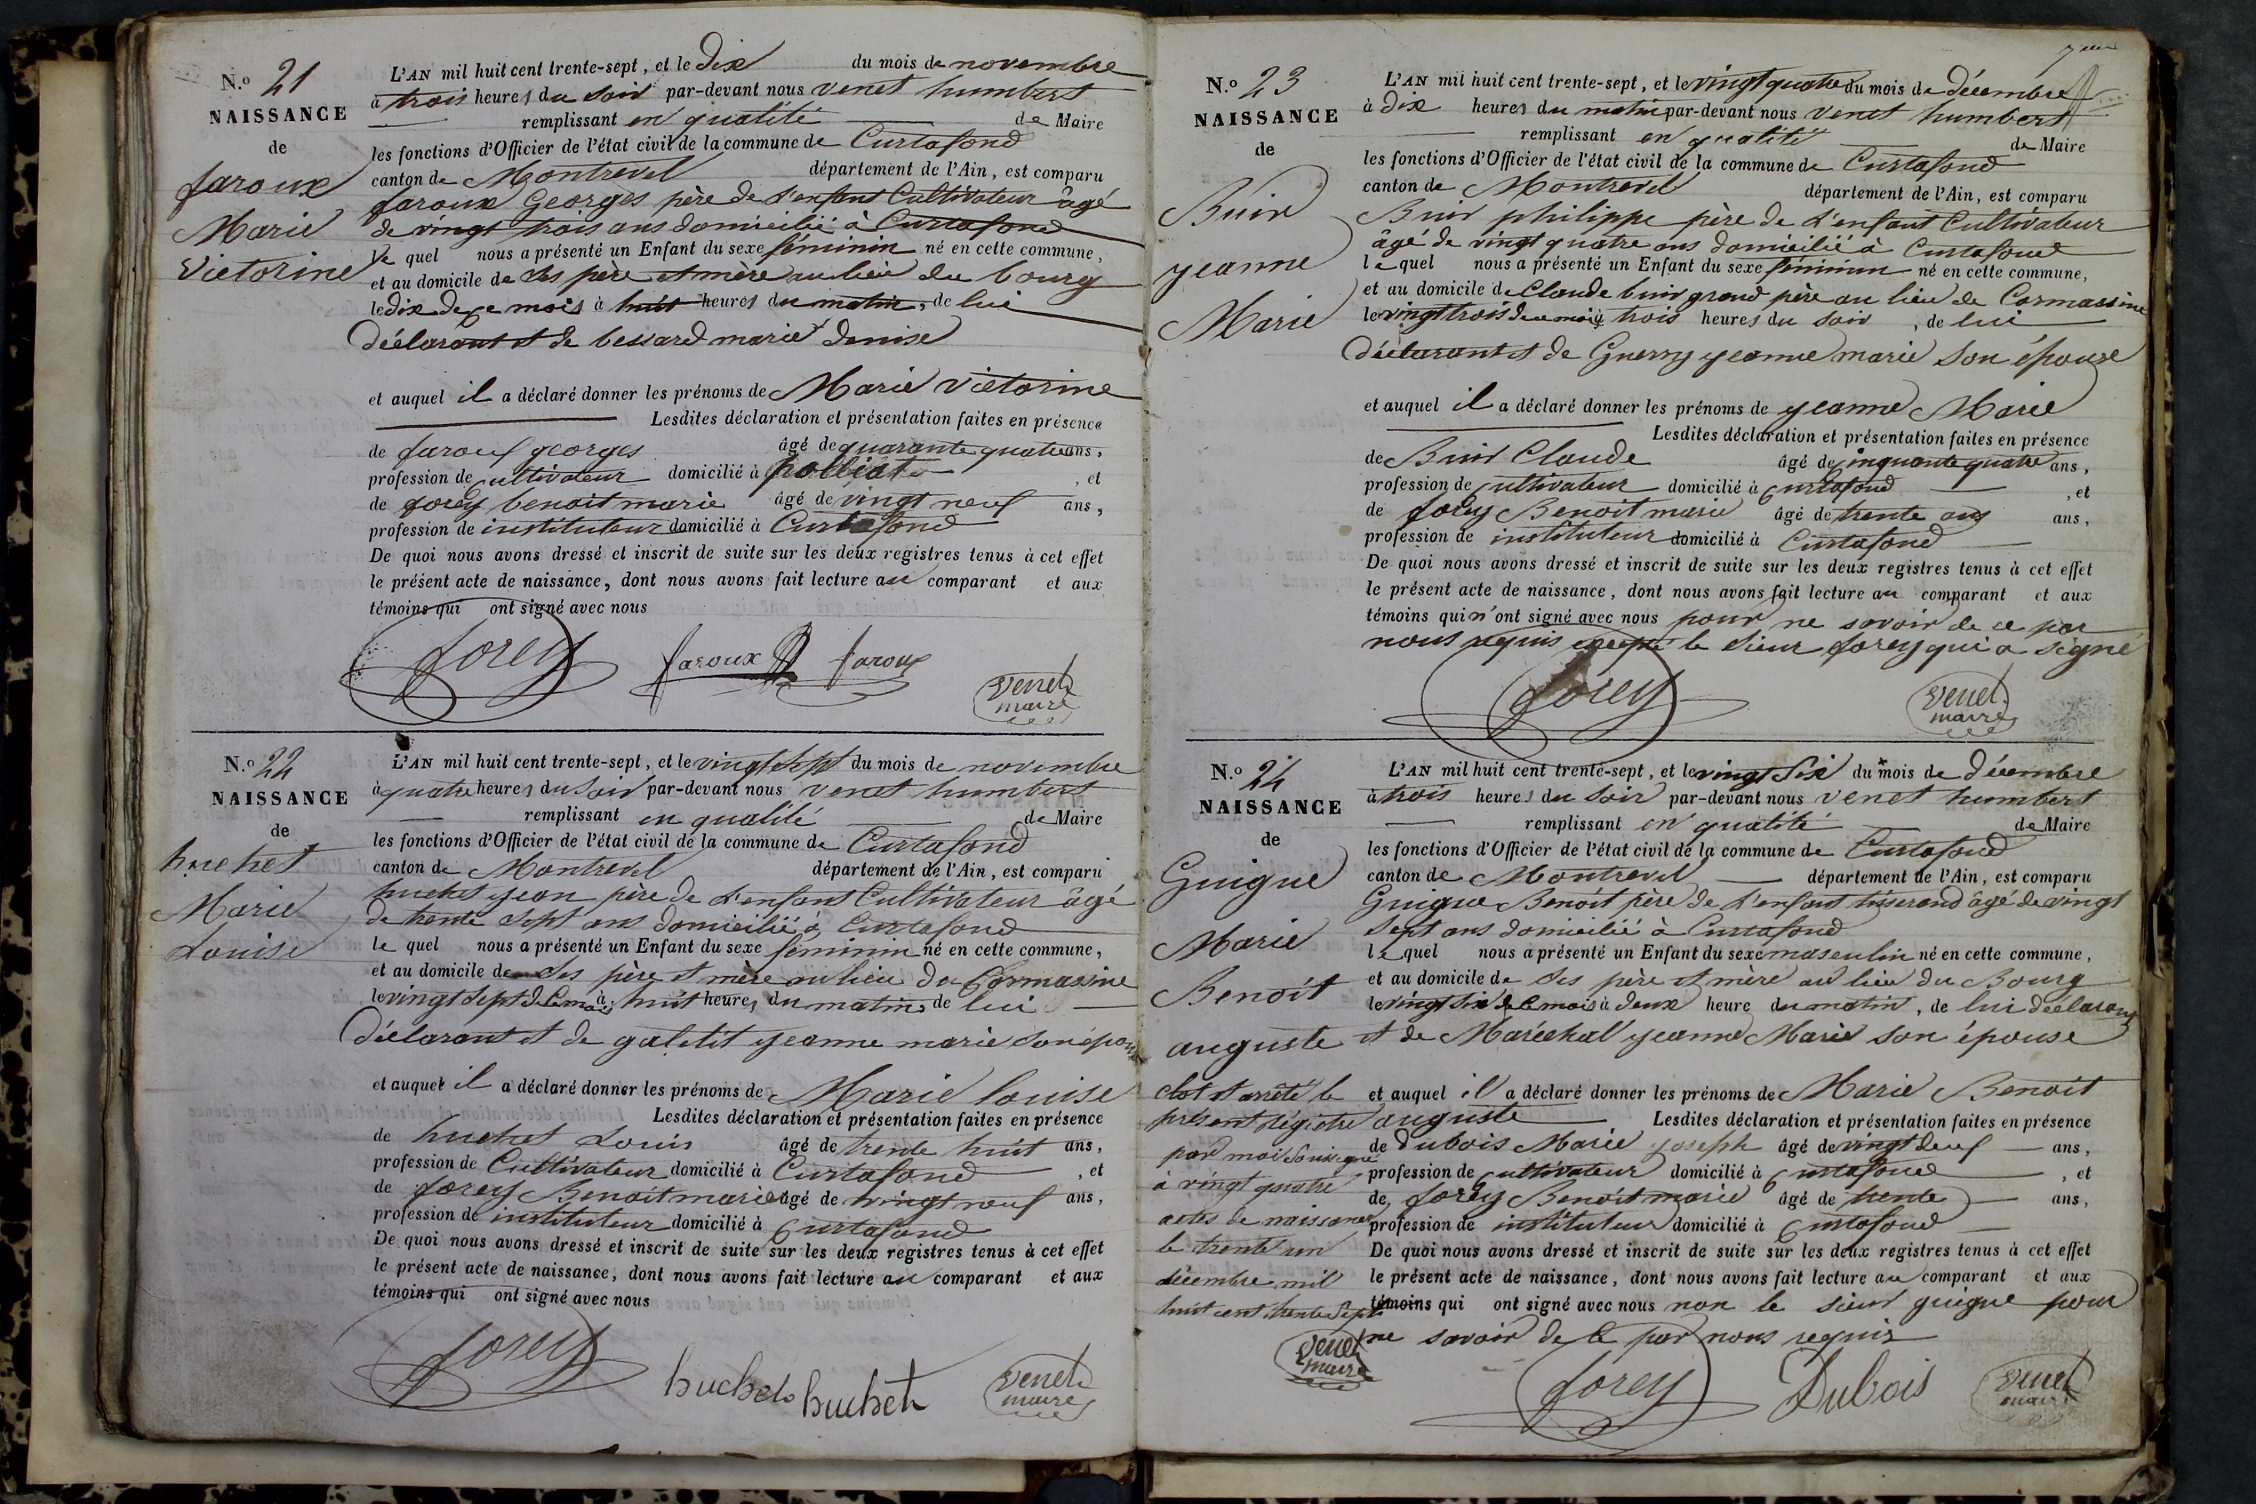 N.o 21
NAISSANCE
de
faroux
Marie
Victorine
L'AN mil huit cent trente-sept, et le dix du mois de novembre
à trois heures du soir par-devant nous venet humbert
remplissant en qualité de Maire
les fonctions d'Officier de l'état civil de la commune de Curtafond
canton de Montrevel département de l'Ain, est comparu
faroux Georges père de l'enfant Cultivateur âgé
de vingt trois ans domicilié à Curtafond
le quel nous a présenté un Enfant du sexe féminin né en cette commune,
et au domicile de ses père et mère au lieu du bourg
le dix de ce mois à huit heures du matin, de lui
déclarant et de bessard marie denise
et auquel il a déclaré donner les prénoms de Marie victorine
Lesdites déclaration et présentation faites en présence
de faroux georges âgé de quarante quatre ans,
profession de cultivateur domicilié à polliat, et
de forey benoit marie âgé de vingt neuf ans,
profession de instituteur domicilié à Curtafond
De quoi nous avons dressé et inscrit de suite sur les deux registres tenus à cet effet
le présent acte de naissance, dont nous avons fait lecture au comparant et aux
témoins qui ont signé avec nous
forey faroux faroux venet
maire
N.o 22
NAISSANCE
de
huchet
Marie
Louise
L'AN mil huit cent trente-sept, et le vingt sept du mois de novembre
à quatre heures du soir par-devant nous venet humbert
remplissant en qualité de Maire
les fonctions d'Officier de l'état civil de la commune de Curtafond
canton de Montrevel département de l'Ain, est comparu
huchet jean père de l'enfant Cultivateur âgé
de trente sept ans domicilié à Curtafond
le quel nous a présenté un Enfant du sexe féminin né en cette commune,
et au domicile de ses père et mère au lieu du Cormassine
le vingt sept de ce mois à huit heures du matin, de lui
déclarant et de galetit jeanne marie son épouse
et auquel il a déclaré donner les prénoms de Marie louise
Lesdites déclaration et présentation faites en présence
de huchet Louis âgé de trente huit ans,
profession de Cultivateur domicilié à Curtafond, et
de forey Benoit marie âgé de vingt neuf ans,
profession de instituteur domicilié à Curtafond
De quoi nous avons dressé et inscrit de suite sur les deux registres tenus à cet effet
le présent acte de naissance, dont nous avons fait lecture au comparant et aux
témoins qui ont signé avec nous
forey huchet huchet venet
maire
N.o 23
NAISSANCE
de
Buir
jeanne
Marie
L'AN mil huit cent trente-sept, et le vingt quatre du mois de décembre
à dix heures du matin par-devant nous venet humbert
remplissant en qualité de Maire
les fonctions d'Officier de l'état civil de la commune de Curtafond
canton de Montrevel département de l'Ain, est comparu
Buir philippe père de l'enfant Cultivateur
âgé de vingt quatre ans domicilié à Curtafond
le quel nous a présenté un Enfant du sexe féminin né en cette commune,
et au domicile de Claude buir grand père au lieu de Cormassine
le vingt trois de ce mois à trois heures du soir, de lui
déclarant et de Guerry jeanne marie son épouse
et auquel il a déclaré donner les prénoms de jeanne Marie
Lesdites déclaration et présentation faites en présence
de Buir Claude âgé de cinquante quatre ans,
profession de cultivateur domicilié à Curtafond, et
de forey Benoit marie âgé de trente ans,
profession de instituteur domicilié à Curtafond
De quoi nous avons dressé et inscrit de suite sur les deux registres tenus à cet effet
le présent acte de naissance, dont nous avons fait lecture au comparant et aux
témoins qui n'ont signé avec nous pour ne savoir de ce par
nous requis excepté le sieur forey qui a signé
forey venet
maire
N.o 24
NAISSANCE
de
Guigue
Marie
Benoit
auguste
L'AN mil huit cent trente-sept, et le vingt six du mois de décembre
à trois heures du soir par-devant nous venet humbert
remplissant en qualité de Maire
les fonctions d'Officier de l'état civil de la commune de Curtafond
canton de Montrevel département de l'Ain, est comparu
Guigue Benoit père de l'enfant tisserand âgé de vingt
sept ans domicilié à Curtafond
le quel nous a présenté un Enfant du sexe masculin né en cette commune,
et au domicile de ses père et mère au lieu du Bourg
le vingt six de ce mois à deux heure du matin, de lui déclarant
et de Maréchal jeanne Marie son épouse
et auquel il a déclaré donner les prénoms de Marie Benoit
auguste Lesdites déclaration et présentation faites en présence
de Dubois Marie joseph âgé de vingt neuf ans,
profession de cultivateur domicilié à Curtafond, et
de forey Benoit marie âgé de trente ans,
profession de instituteur domicilié à Curtafond
De quoi nous avons dressé et inscrit de suite sur les deux registres tenus à cet effet
le présent acte de naissance, dont nous avons fait lecture au comparant et aux
témoins qui ont signé avec nous non le sieur guigue pour
ne savoir de ce par nous requis
forey Dubois venet
maire
clot et arrêté le
présent régistre
par moi soussigné
à vingt quatre
actes de naissance
le trente un
décembre mil
huit cent trente sept
venet
maire